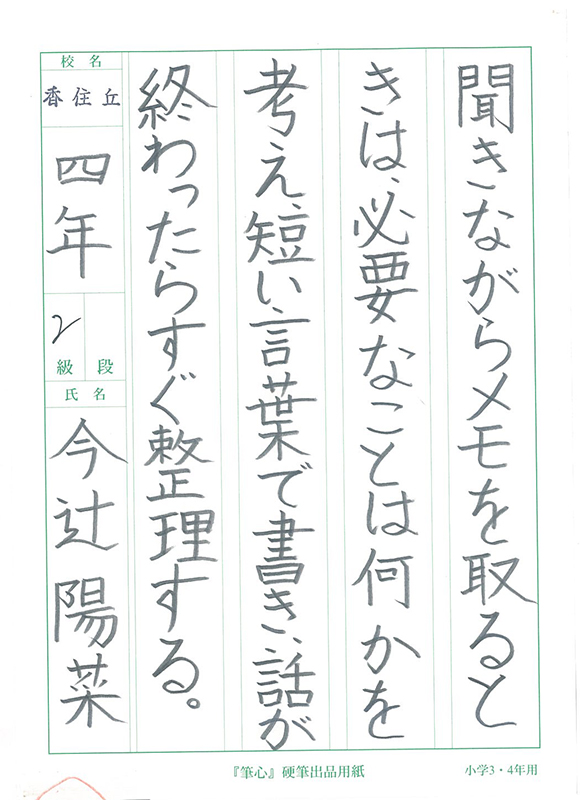 聞きながらメモを取ると
きは、必要なことは何かを
考え、短い言葉で書き、話が
終わったらすぐ整理する。
校名
香住丘
四年
2
級
段
氏名
今辻陽菜
『筆心』硬筆出品用紙
小学3・4年用